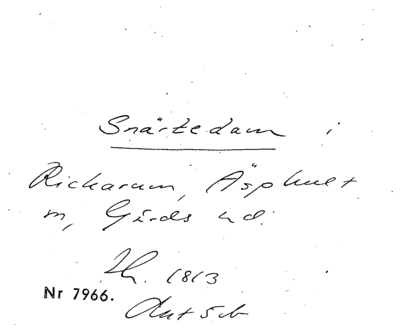 Snärtedam i
Rickarum, Äsphult
m, Gärds hd.
Th. 1813
Nr 7966.